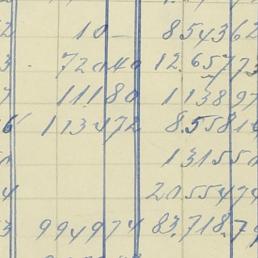 2 10 - 854362
3 . 72040 12.65773
7 11180 113897
6 113472 8.55814
131550
4 20.55474
3 994974 83.718.79